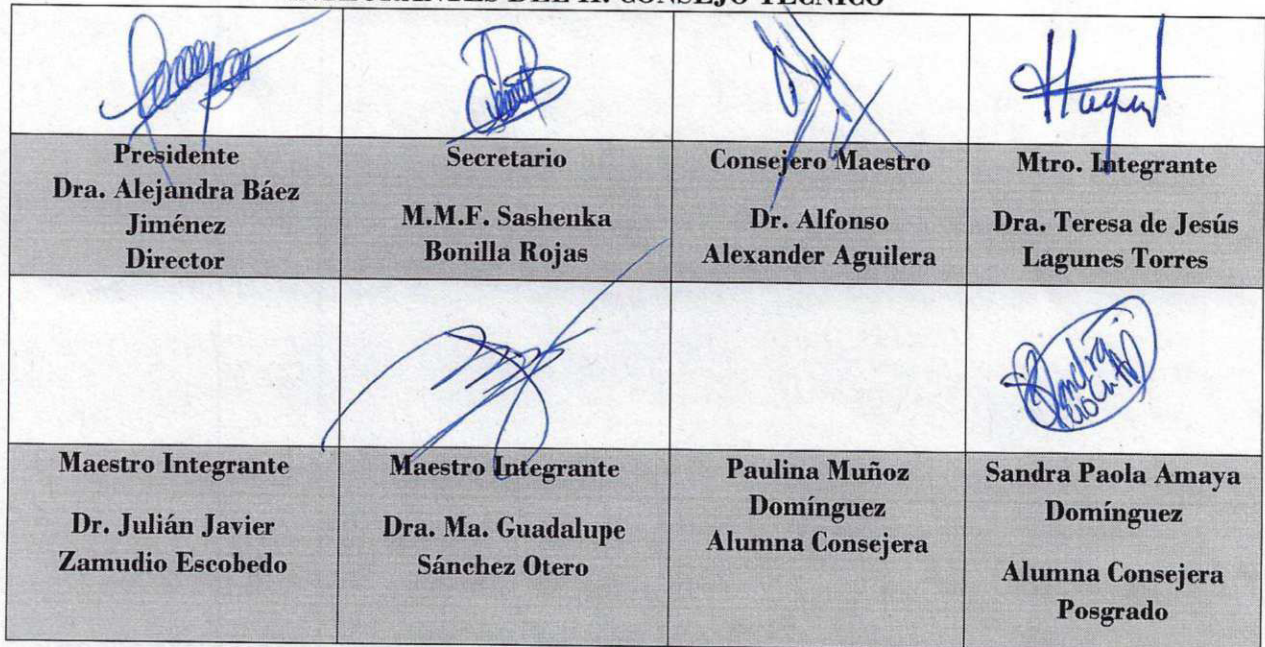 INTEGRANTES DEL H. CONSEJO TÉCNICO
Presidente
Dra. Alejandra Báez
Jiménez
Director
Secretario
M.M.F. Sashenka
Bonilla Rojas
Consejero Maestro
Dr. Alfonso
Alexander Aguilera
Mtro. Integrante
Dra. Teresa de Jesús
Lagunes Torres
Maestro Integrante
Dr. Julián Javier
Zamudio Escobedo
Maestro Integrante
Dra. Ma. Guadalupe
Sánchez Otero
Paulina Muñoz
Domínguez
Alumna Consejera
Sandra Paola Amaya
Domínguez
Alumna Consejera
Posgrado